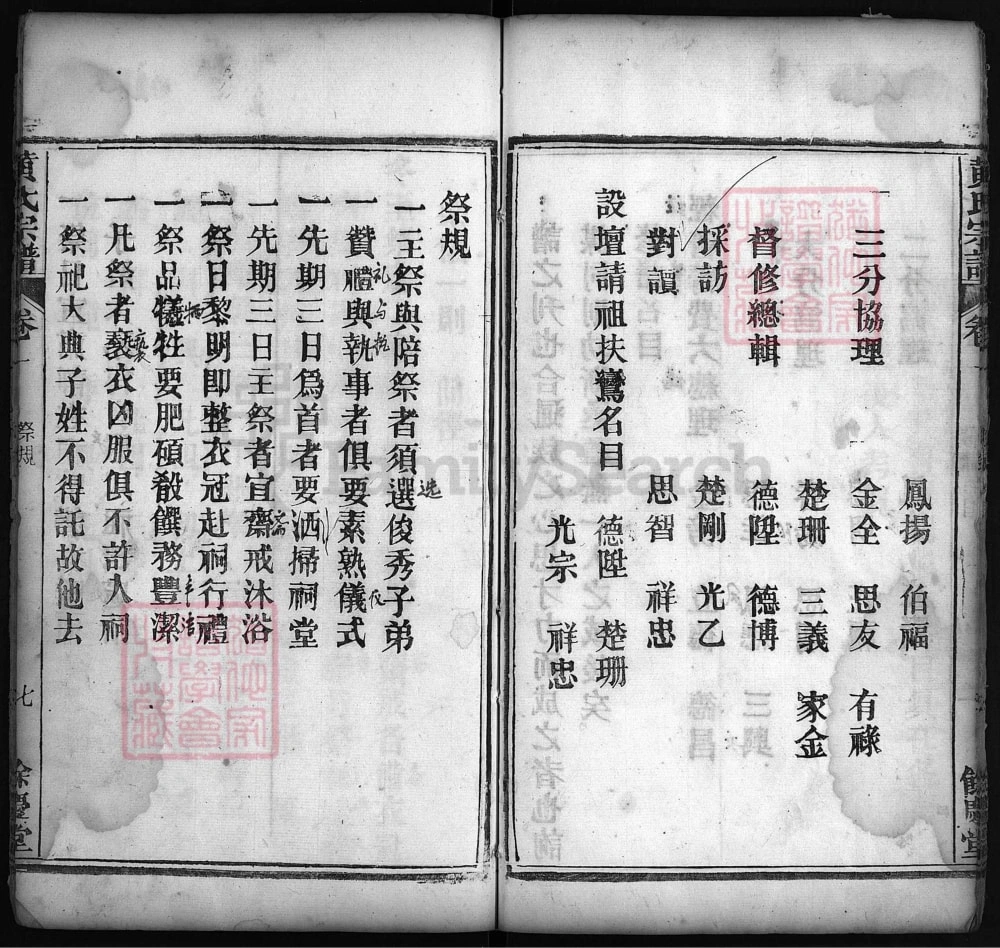 鳳揚 伯福
三分協理 金全 思友 有祿
楚珊 三義 家金
督修總輯 德陞 德博
採訪 楚剛 光乙
對讀 思智 祥忠
設壇請祖扶鸞名目 德陞 楚珊
光宗 祥忠
餘慶堂
黃氏宗譜 卷一 祭規 七 餘慶堂
祭規
一主祭與陪祭者須選俊秀子弟
选
一贊禮與執事者俱要素熟儀式
礼
一先期三日爲首者要洒掃祠堂
一先期三日主祭者宜齋戒沐浴
一祭日黎明卽整衣冠赴祠行禮
一祭品犧牲要肥碩殽饌務豐潔
一凡祭者褻衣凶服俱不許入祠
一祭祀大典子姓不得託故他去
FamilySearch